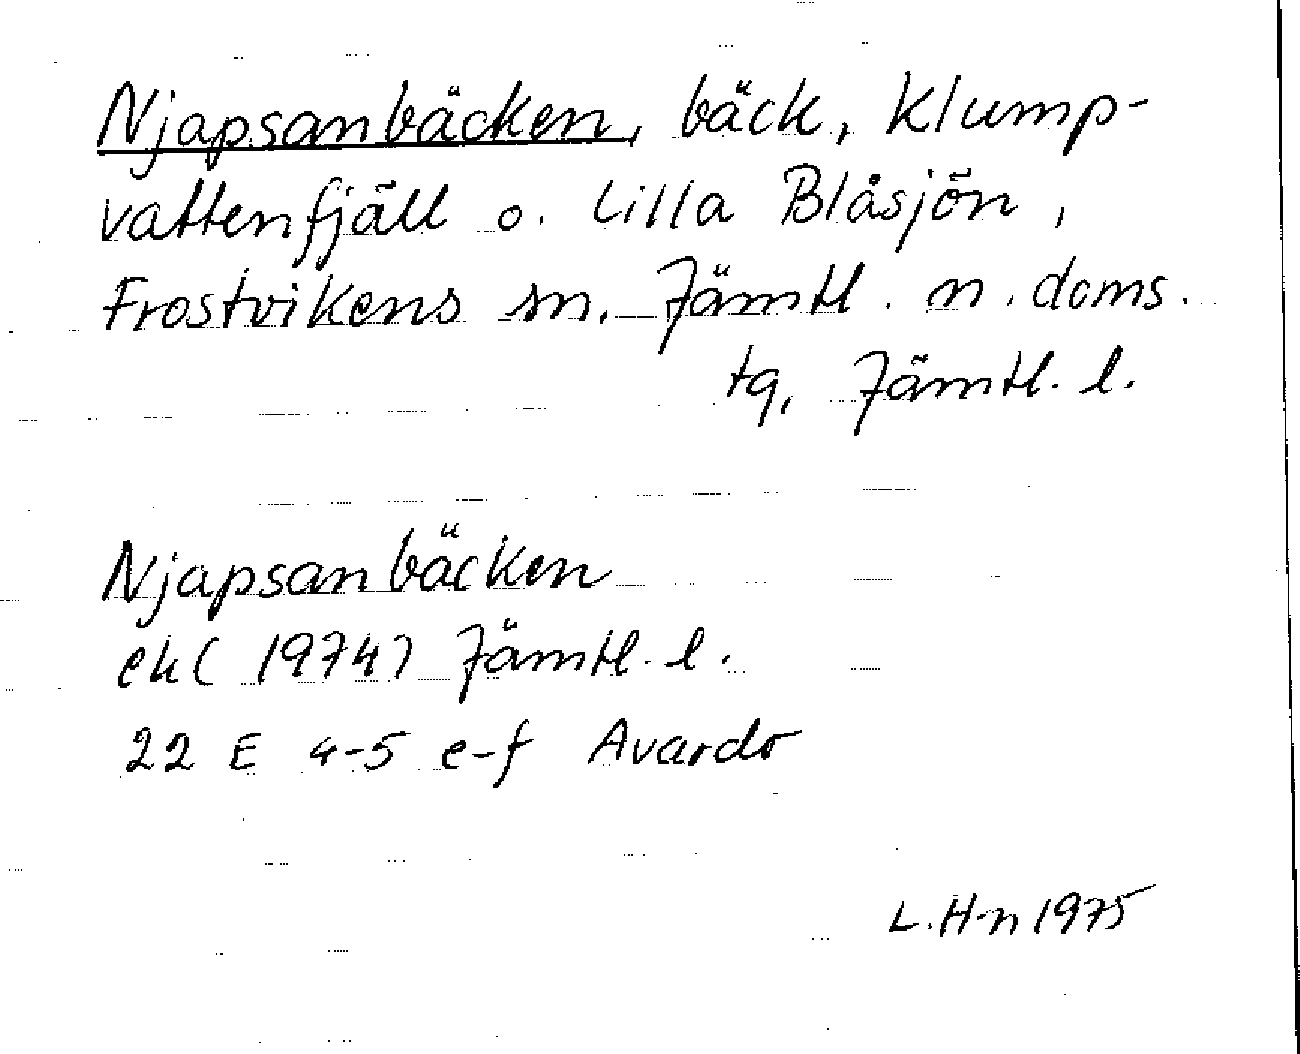 Njapsanbäcken, bäck, Klump-
vattenfjäll o. Lilla Blåsjön,
Frostvikens sn. Jämtl. n. doms.
tq, Jämtl. l.
Njapsanbäcken
ek( 1974) Jämtl. l.
22 E 4-5 e-f Avardo
L.H-n 1975